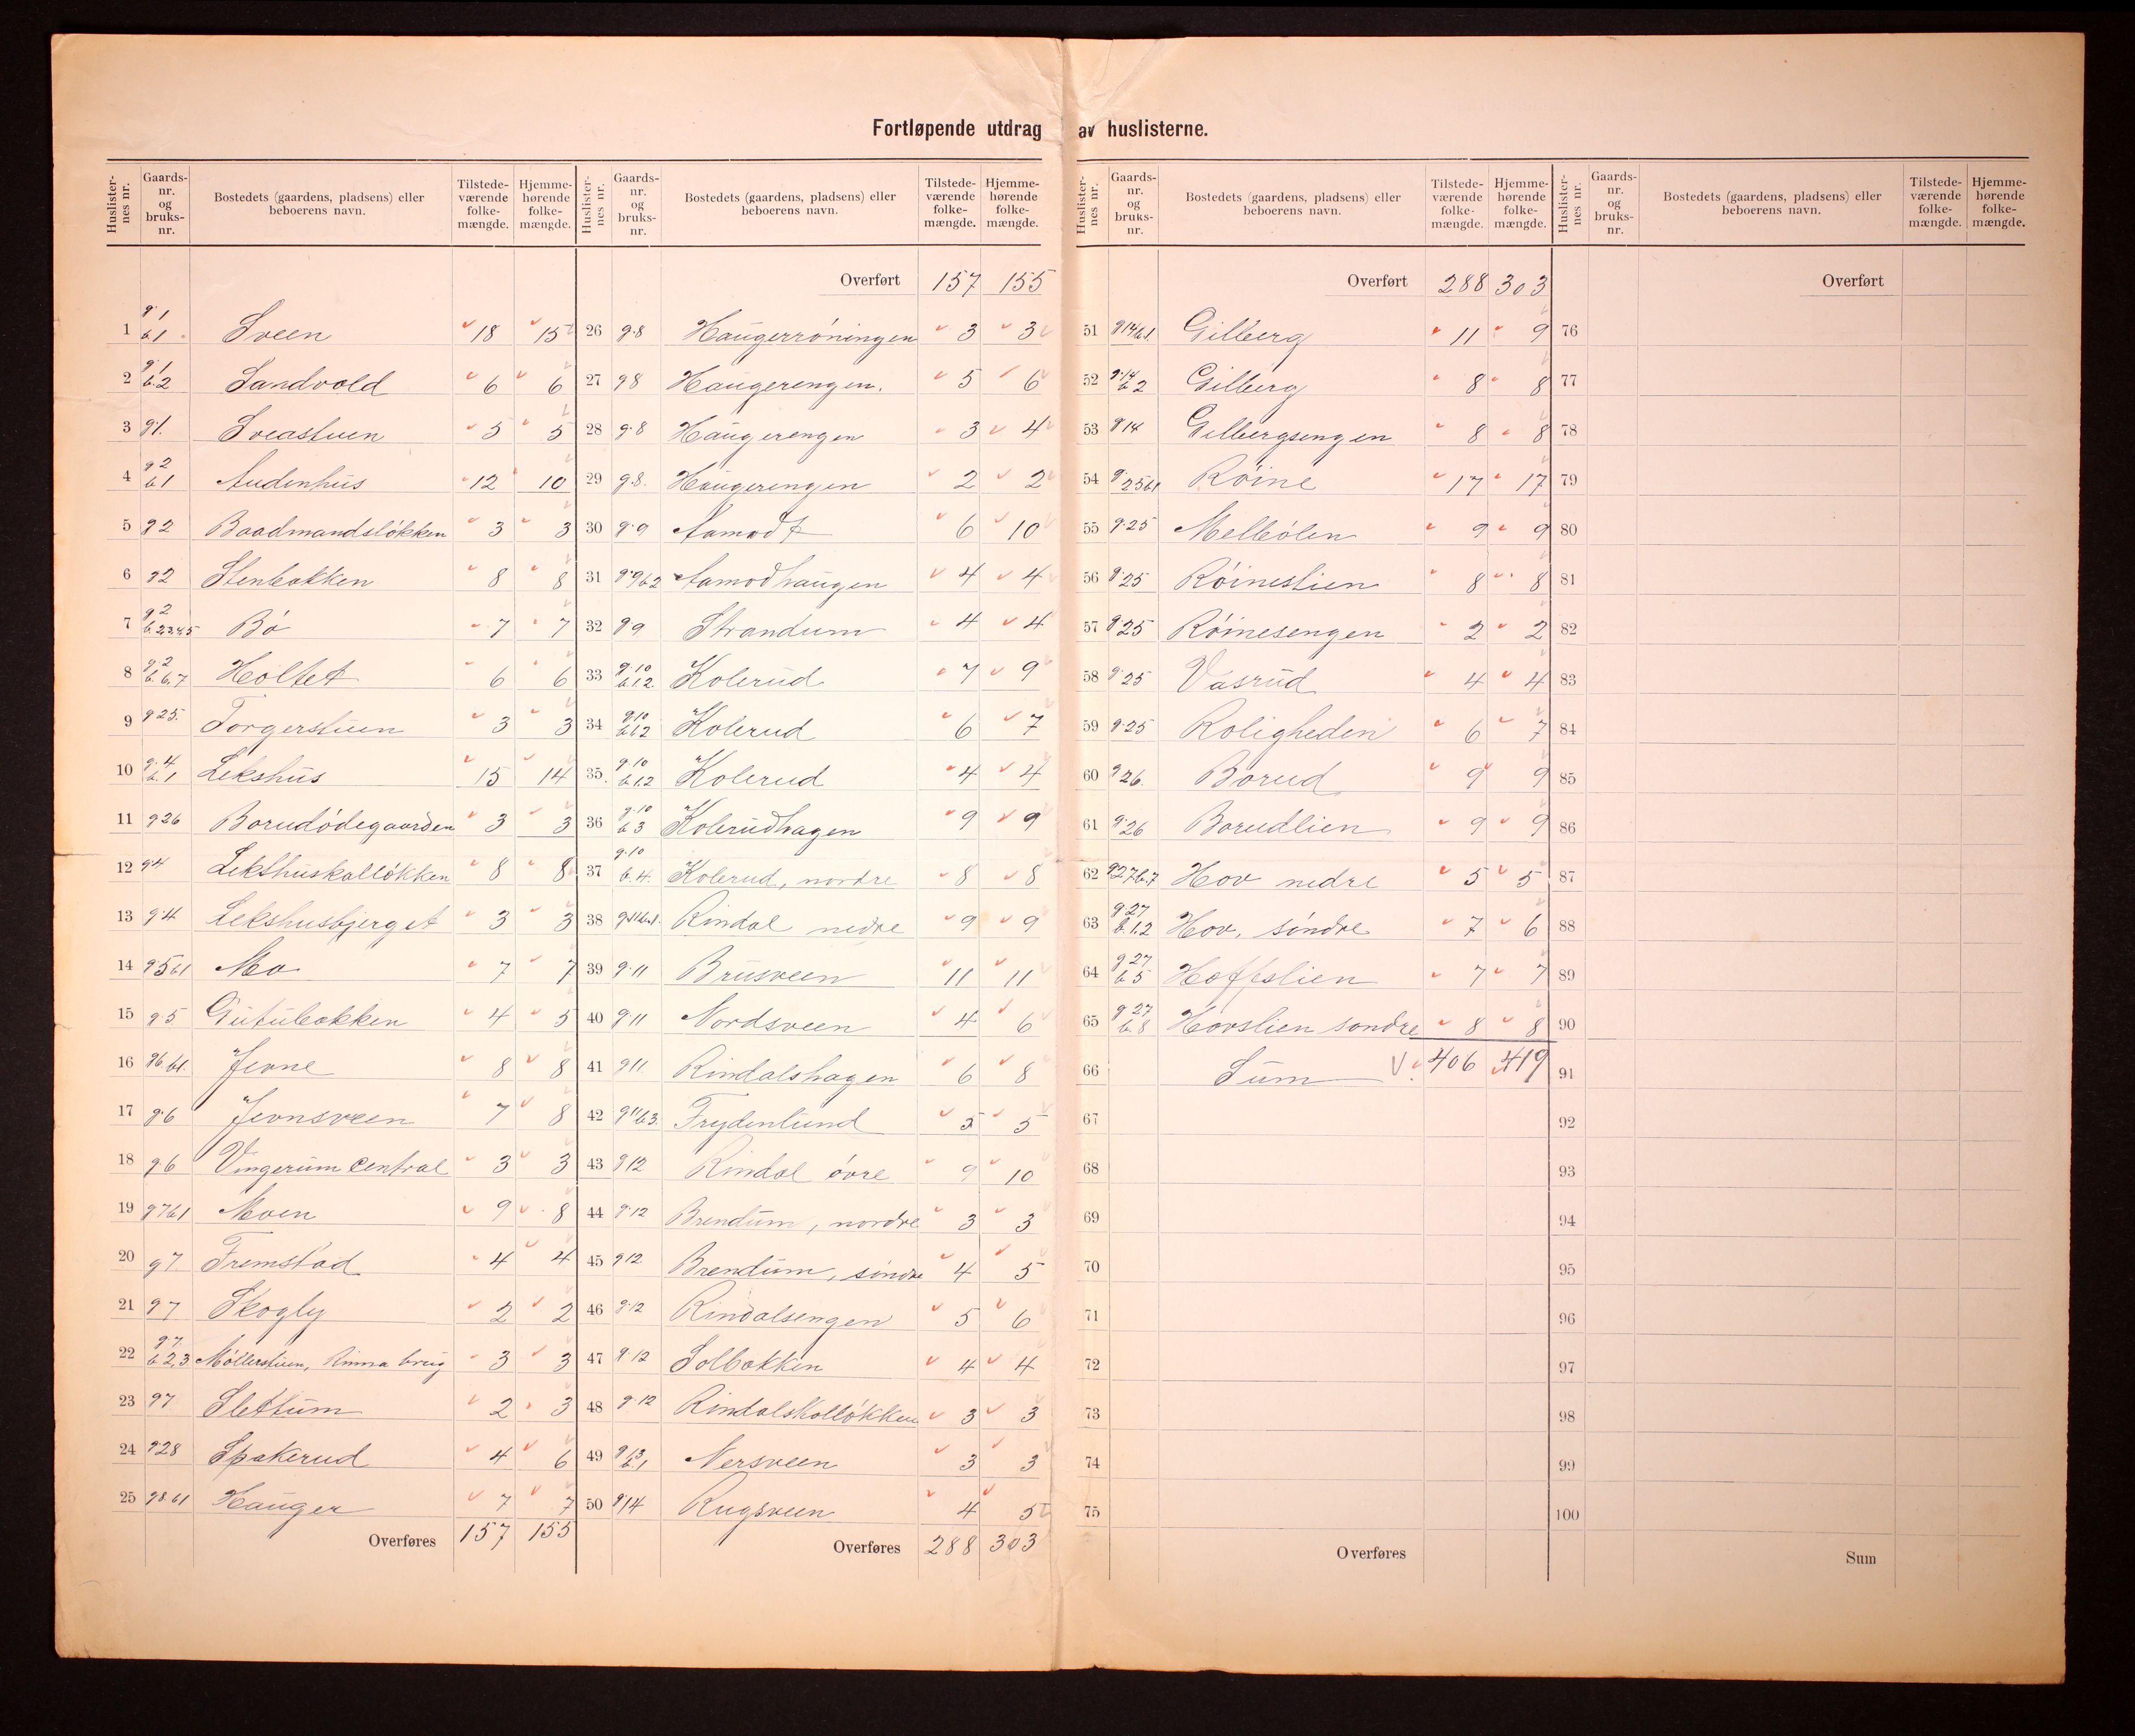 Fortløpende utdrag av huslisterne.
Huslister-nes nr. Gaards-nr. og bruks-nr. Bostedets (gaardens, pladsens) eller beboerens navn. Tilstede-værende folke-mængde. Hjemme-hørende folke-mængde.
1 g. 1 b. 1 Sveen 18 15
2 g. 1 b. 2 Sandvold 6 6
3 g 1. Sveastuen 5 5
4 g 2 b 1 Audenhus 12 10
5 g 2 Baadmandsløkken 3 3
6 g 2 Stenbakken 8 8
7 g 2 b. 2.3.4.5 Bø 7 7
8 g. 2 b. 6.7 Holtet 6 6
9 g 25. Torgerstuen 3 3
10 g. 4 b. 1 Lekshus 15 14
11 g 26 Borudødegaarden 3 3
12 g 4 Lekshuskalløkken 8 8
13 g. 4 Lekshusbjerget 3 3
14 g. 5 b 1 Mo 7 7
15 g. 5 Gutubakken 4 5
16 g 6 b 1. Jevne 8 8
17 g. 6 Jevnsveen 7 8
18 g 6 Vingerum central 3 3
19 g 7 b. 1 Moen 9 8
20 g 7 Fremstad 4 4
21 g 7 Skogly 2 2
22 g. 7 b 2,3 Møllerstuen, Rinna brug 3 3
23 g 7 Slettum 2 3
24 g 28 Spakerud 4 6
25 g 8. b 1 Hauger 7 7
Overføres 157 155
Huslister-nes nr. Gaards-nr. og bruks-nr. Bostedets (gaardens, pladsens) eller beboerens navn. Tilstede-værende folke-mængde. Hjemme-hørende folke-mængde.
Overført 157 155
26 g. 8 Haugerrøningen 3 3
27 g 8 Haugerengen. 5 6
28 g. 8 Haugerengen 3 4
29 g. 8. Haugerengen 2 2
30 g. 9 Aamodt 6 10
31 g. 9 b. 2 Aamodhaugen 4 4
32 g 9 Strandum 4 4
33 g. 10 b. 1.2. Kolerud 7 9
34 g. 10 b. 1.2 Kolerud 6 7
35 g. 10 b. 1.2 Kolerud 4 4
36 g. 10 b 3 Kolerudhagen 9 9
37 g. 10 b. 4. Kolerud, nordre 8 8
38 g. 11 b. 1. Rindal nedre 9 9
39 g. 11 Brusveen 11 11
40 g. 11 Nordsveen 4 6
41 g 11 Rindalshagen 6 8
42 g 11 b 3. Frydenlund 5 5
43 g 12 Rindal øvre 9 10
44 g. 12 Brendum, nordre 3 3
45 g 12 Brendum, søndre 4 5
46 g. 12 Rindalsengen 5 6
47 g 12 Solbakken 4 4
48 g. 12 Rindalskalløkken 3 3
49 g 13 b. 1 Nersveen 3 3
50 g 14 Rugsveen 4 5
Overføres 288 303
Huslister-nes nr. Gaards-nr. og bruks-nr. Bostedets (gaardens, pladsens) eller beboerens navn. Tilstede-værende folke-mængde. Hjemme-hørende folke-mængde.
Overført 288 303
51 g 14 b. 1. Gilberg 11 9
52 g. 14 b 2 Gilberg 8 8
53 g 14 Gilbergsengen 8 8
54 g. 25 b 1 Røine 17 17
55 g. 25 Melbølen 9 9
56 g. 25 Røineslien 8 8
57 g. 25 Røinesengen 2 2
58 g. 25 Vasrud 4 4
59 g. 25 Roligheden 6 7
60 g 26. Borud 9 9
61 g. 26 Borudlien 9 9
62 g 27 b. 7 Hov nedre 5 5
63 g. 27 b. 1.2 Hov, søndre 7 6
64 g. 27 b 5 Hoffslien 7 7
65 g 27 b. 8 Hovslien søndre 8 8
66 Sum 406 419
67
68
69
70
71
72
73
74
75
Overføres
Huslister-nes nr. Gaards-nr. og bruks-nr. Bostedets (gaardens, pladsens) eller beboerens navn. Tilstede-værende folke-mængde. Hjemme-hørende folke-mængde.
Overført
76
77
78
79
80
81
82
83
84
85
86
87
88
89
90
91
92
93
94
95
96
97
98
99
100
Sum